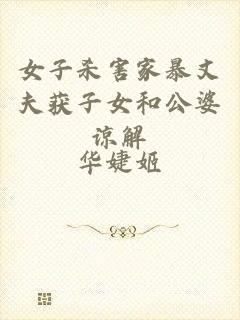 女子杀害家暴丈
夫获子女和公婆
谅解
华婕姬